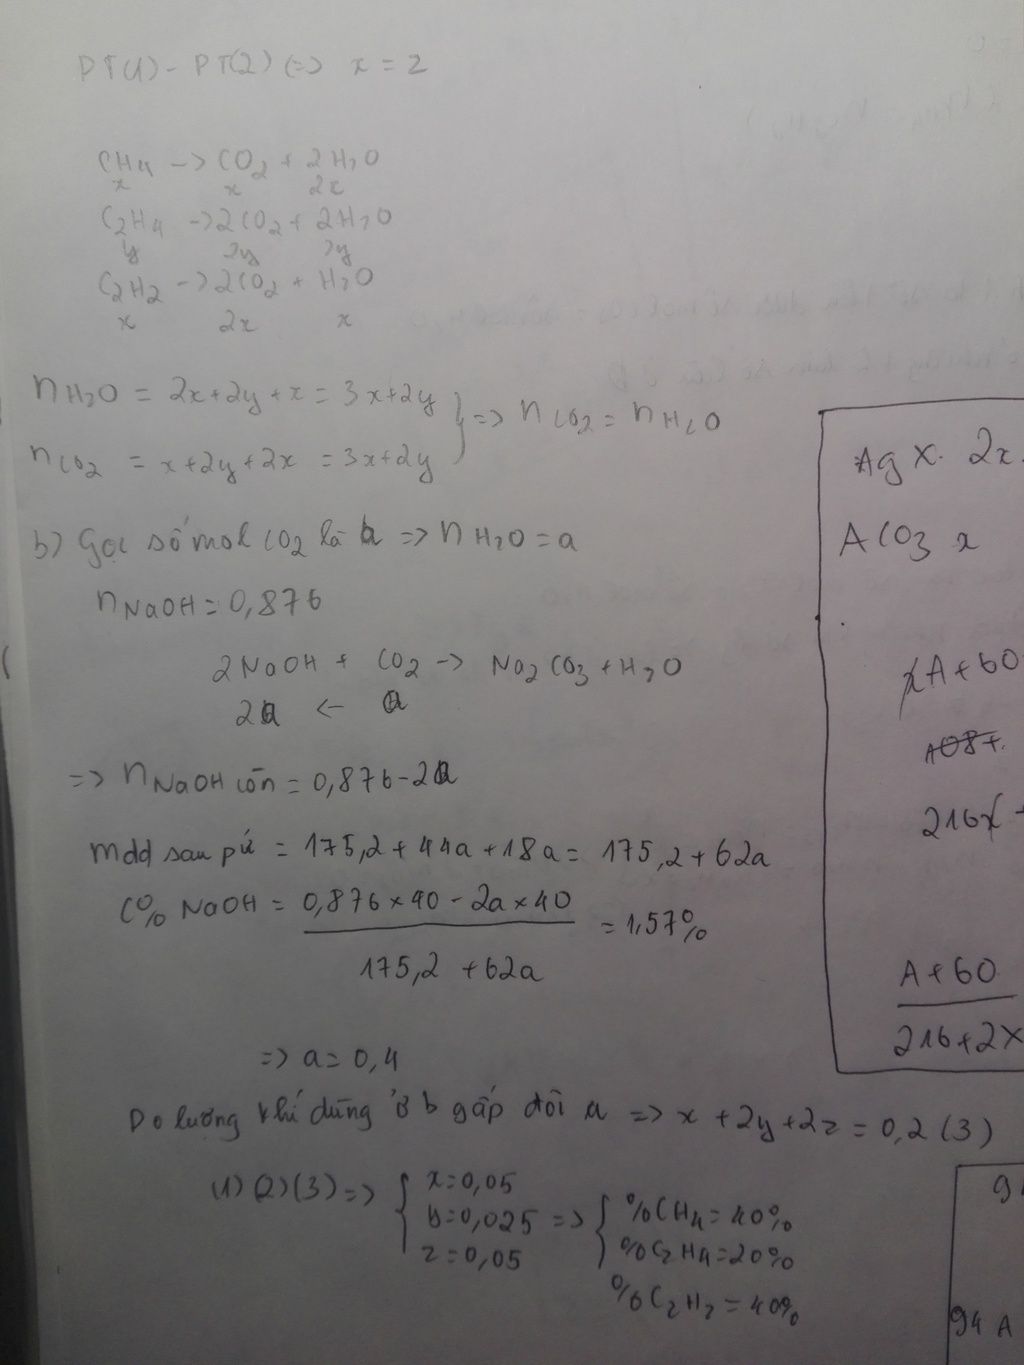 PT(1) - PT(2) (=> x = z
CH4 -> CO2 + 2H2O
x x 2x
C2H4 -> 2CO2 + 2H2O
y 2y 2y
C2H2 -> 2CO2 + H2O
x 2x x
nH2O = 2x+2y+x = 3x+2y
nCO2 = x+2y+2x = 3x+2y } => nCO2 = nH2O
b) Gọi số mol CO2 là a => nH2O = a
nNaOH = 0,876
2NaOH + CO2 -> Na2CO3 + H2O
2a <- a
=> nNaOH còn = 0,876-2a
mdd sau pứ = 175,2 + 44a + 18a = 175,2 + 62a
C% NaOH = 0,876 x 40 - 2a x 40 / 175,2 + 62a = 1,57%
=> a = 0,4
Do lương khí dùng ở b gấp đôi a => x + 2y + 2z = 0,2 (3)
(1) (2) (3) => { x = 0,05
y = 0,025 => { %CH4 = 40%
z = 0,05 %C2H4 = 20%
%C2H2 = 40%
AgX. 2x
ACO3 x
xA + 60
216x +
A + 60
216 + 2X
94 A